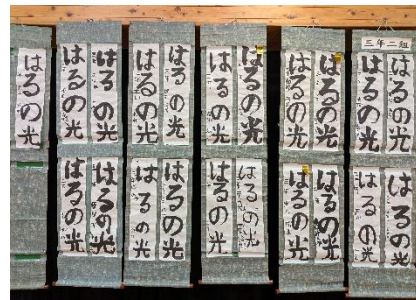 三年二組
はるの光
はるの光
はるの光
はるの光
はるの光
はるの光
はるの光
はるの光
はるの光
はるの光
はるの光
はるの光
はるの光
はるの光
はるの光
はるの光
はるの光
はるの光
はるの光
はるの光
はるの光